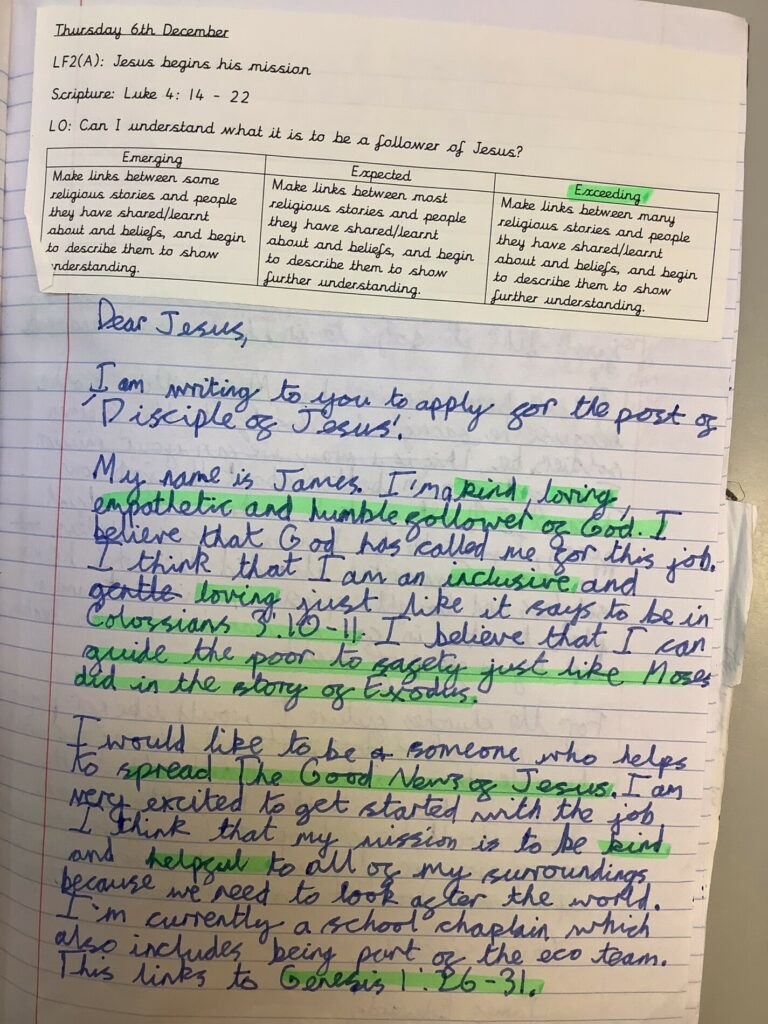 Thursday 6th December
LF2(A): Jesus begins his mission
Scripture: Luke 4: 14 - 22
LO: Can I understand what it is to be a follower of Jesus?
Emerging
Make links between some
religious stories and people
they have shared/learnt
about and beliefs, and begin
to describe them to show
understanding.
Expected
Make links between most
religious stories and people
they have shared/learnt
about and beliefs, and begin
to describe them to show
further understanding.
Exceeding
Make links between many
religious stories and people
they have shared/learnt
about and beliefs, and begin
to describe them to show
further understanding.
Dear Jesus,
I am writing to you to apply for the post of
'Disciple of Jesus'.
My name is James. I'm a kind, loving,
empathetic and humble follower of God. I
believe that God has called me for this job.
I think that I am an inclusive and
gentle loving just like it says to be in
Colossians 3:10-11. I believe that I can
guide the poor to safety just like Moses
did in the story of Exodus.
I would like to be a someone who helps
to spread The Good News of Jesus. I am
very excited to get started with the job.
I think that my mission is to be kind
and helpful to all of my surroundings
because we need to look after the world.
I'm currently a school chaplain which
also includes being part of the eco team.
This links to Genesis 1:26-31.